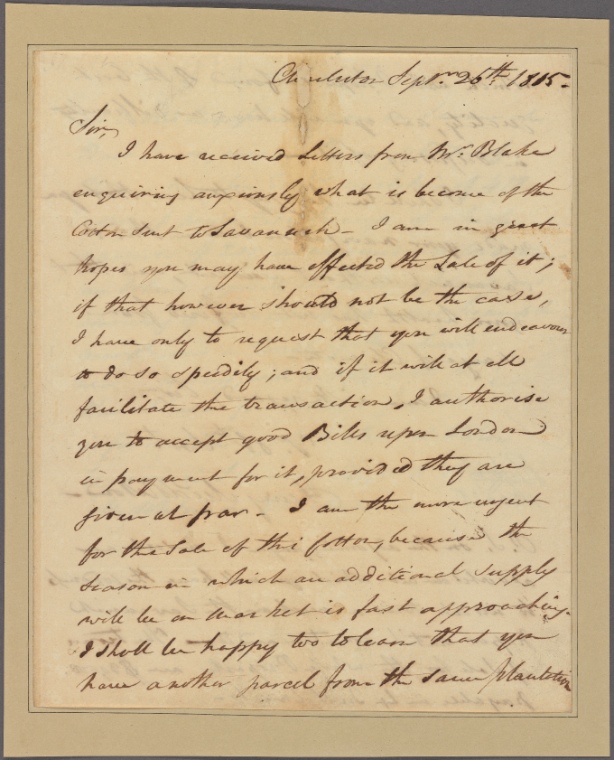 Charleston Sepr. 26th. 1815.
Sir,
I have received Letters from Mr. Blake
enquiring anxiously what is become of the
Cotton sent to Savannah - I am in great
hopes you may have effected the Sale of it;
if that however should not be the case,
I have only to request that you will endeavour
to do so speedily; and if it will at all
facilitate the transaction, I authorise
you to accept good Bills upon London
in payment for it, provided they are
given at par - I am the more urgent
for the Sale of this Cotton, because the
Season in which an additional supply
will be on market is fast approaching.
I shall be happy too to learn that you
have another parcel from the same plantation